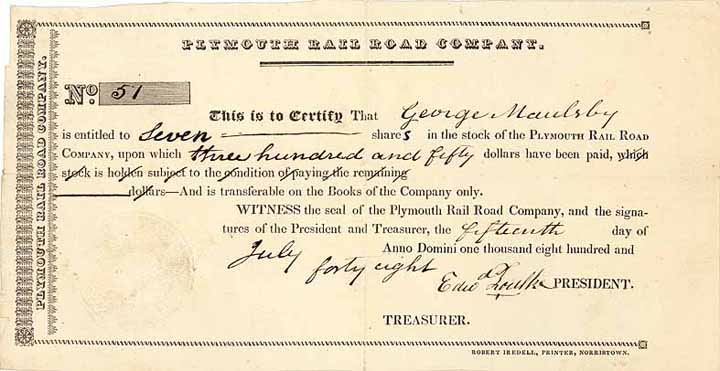 PLYMOUTH RAIL ROAD COMPANY.
PLYMOUTH RAIL ROAD COMPANY.
No. 51
This is to Certify That George Maulsby
is entitled to Seven shares in the stock of the PLYMOUTH RAIL ROAD
COMPANY, upon which three hundred and fifty dollars have been paid, which
stock is holden subject to the condition of paying the remaining
dollars—And is transferable on the Books of the Company only.
WITNESS the seal of the Plymouth Rail Road Company, and the signa-
tures of the President and Treasurer, the fifteenth day of
July Anno Domini one thousand eight hundred and
forty eight
PRESIDENT.
TREASURER.
ROBERT IREDELL, PRINTER, NORRISTOWN.